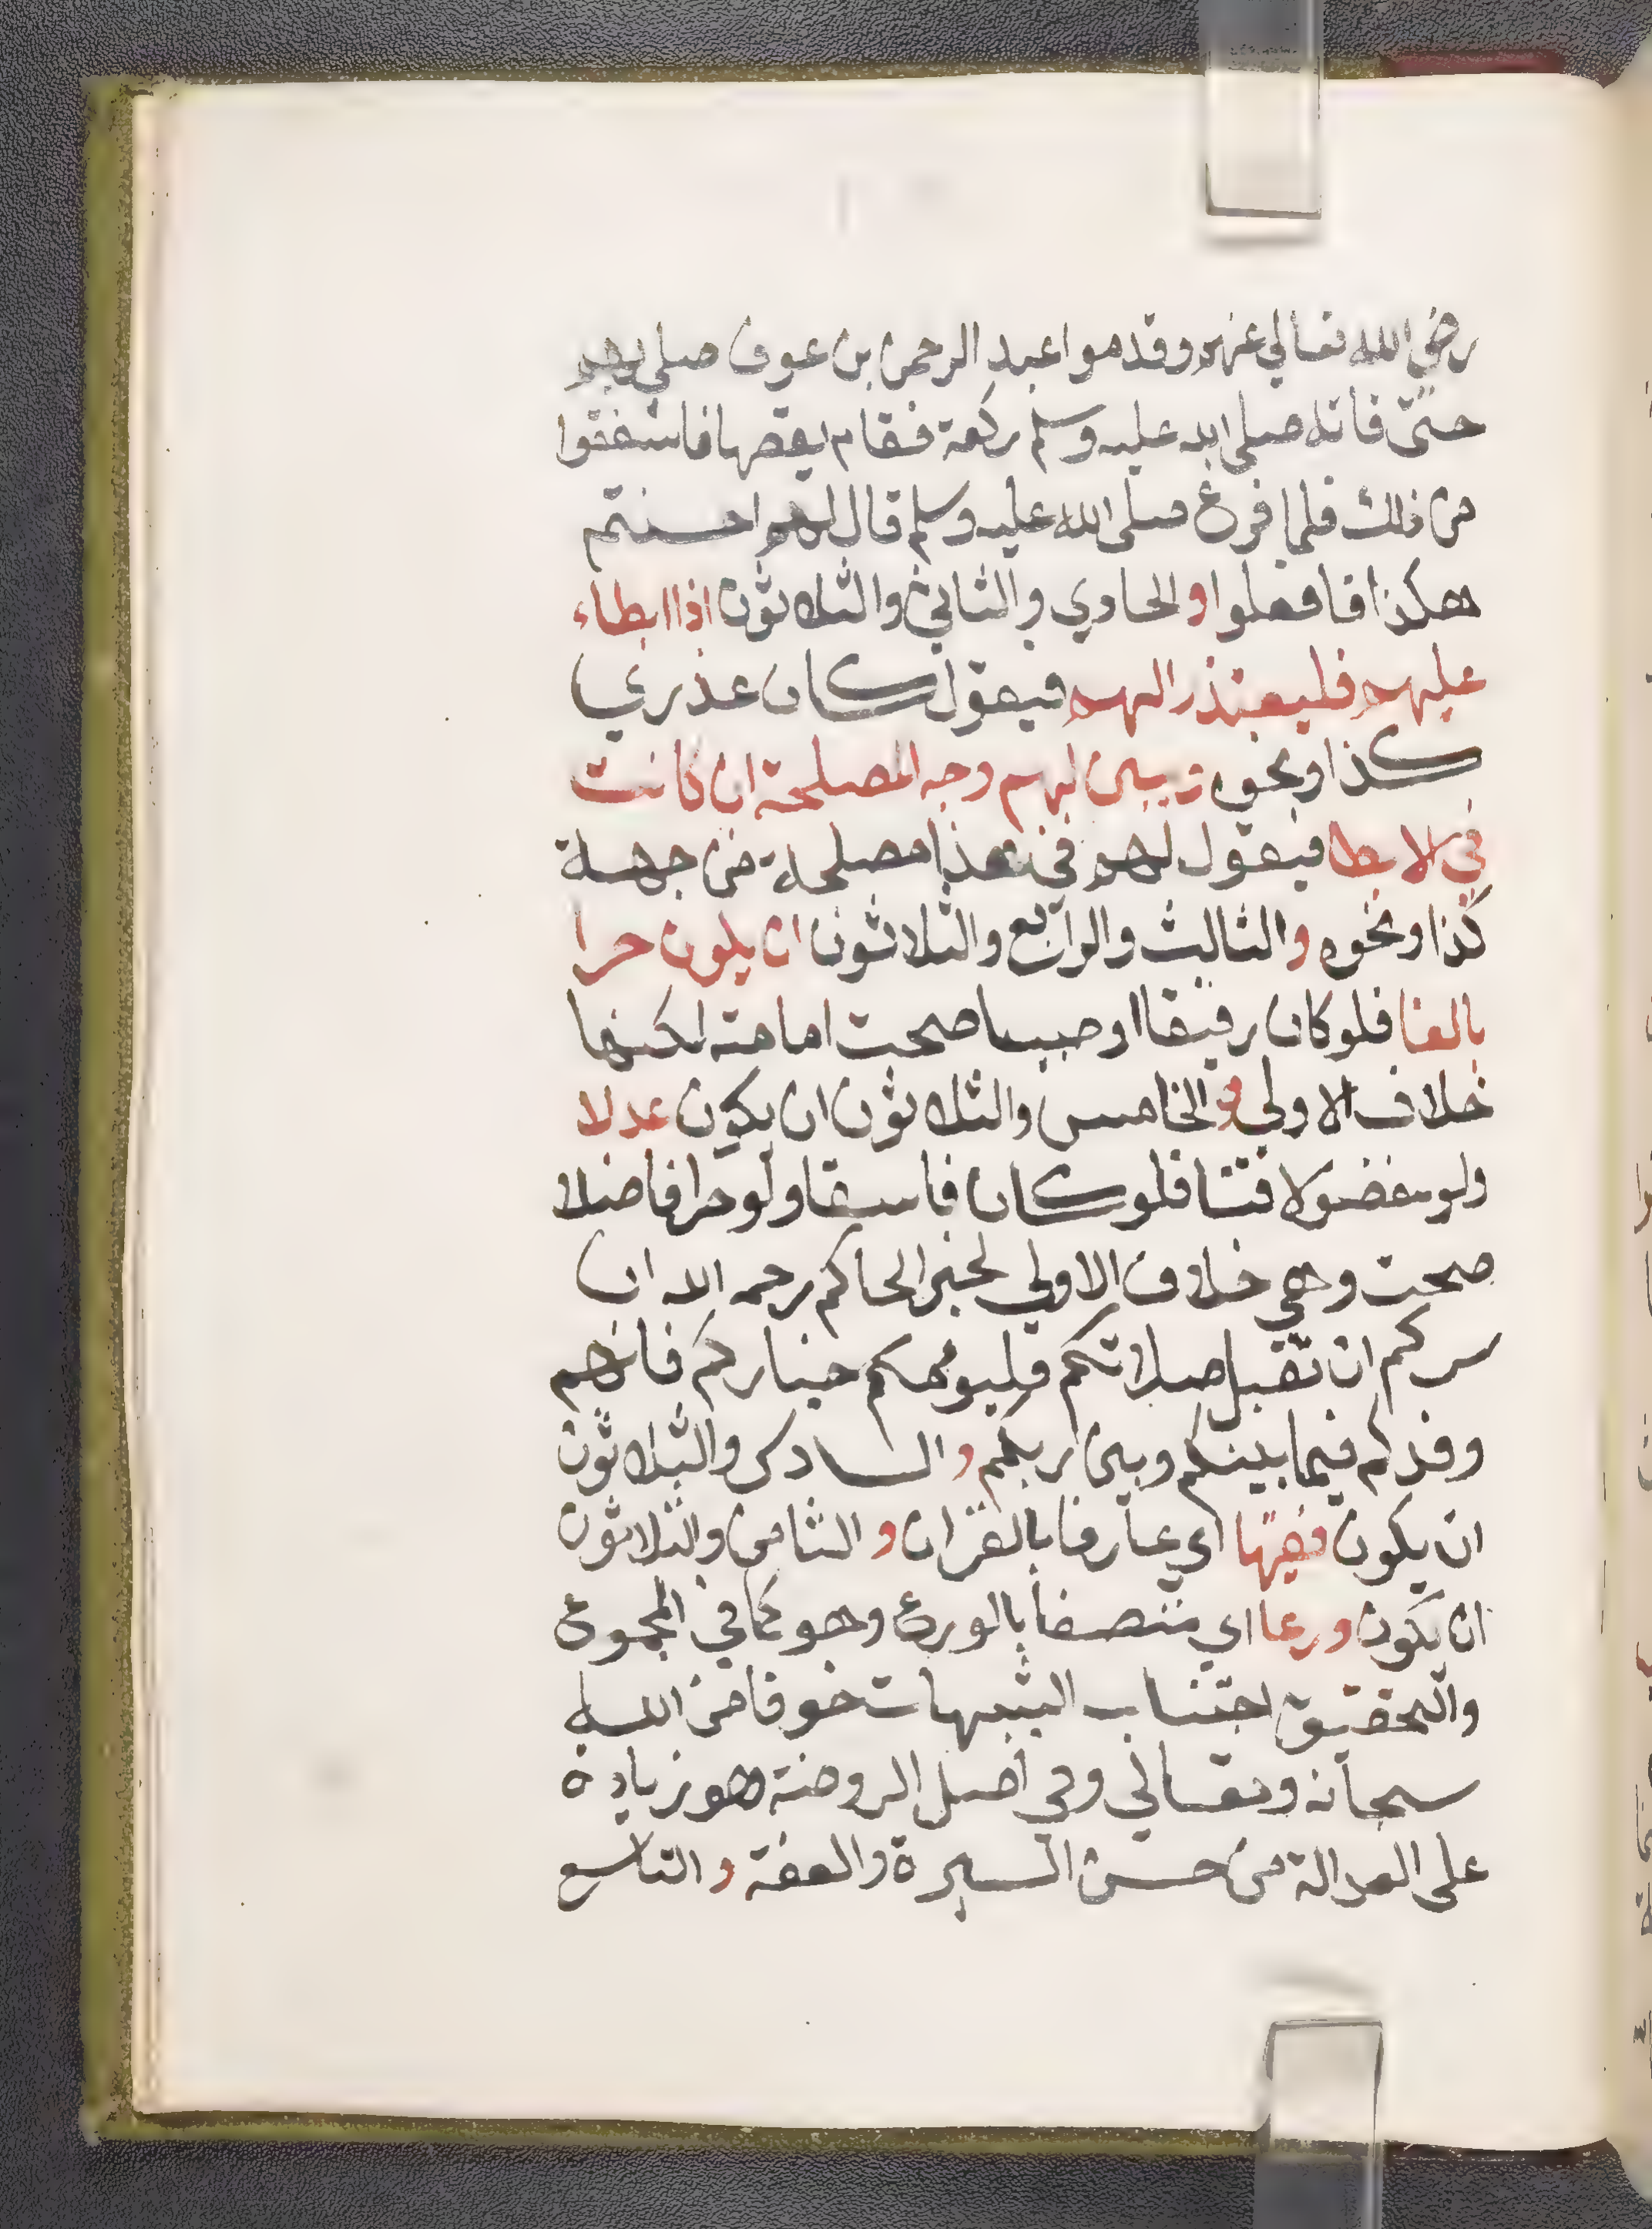 رضي الله تعالي عنهم وقدموا عبد الرحمن بن عوف صلي بهم
حتى فاته صلي الله عليه وسلم ركعة فقام يقضها فاشفقوا
من ذلك فلما فرغ صلى الله عليه وسلم قال لهم احسنتم
هكذا فافعلوا والحادي والثاني والثلاثون اذا ابطاء
عليهم فليعتذر اليهم فيقول كان عذري
كذا ونحوه ويبين لهم وجه المصلحة ان كانت
في الابطا فيقول لهم في هذا مصلحة من جهة
كذا ونحوه والثالث والرابع والثلاثون ان يكون حرا
بالغا فلو كان رقيقا او صبيا صحت امامته لكنها
خلاف الاولي والخامس والثلاثون ان يكون عدلا
ولو مفضولا فنا فلو كان فاسقا ولو حرا فاضلا
صحت وهي خلاف الاولي لخبر الحاكم رحمه الله ان
سركم ان تقبل صلاتكم فليؤمكم خياركم فانهم
وفدكم فيما بينكم وبين ربكم والسادس والثلاثون
ان يكون فقيها اي عارفا بالقران والثامن والثلاثون
ان يكون ورعا اي متصفا بالورع وهو كما في المجموع
والتحقيق اجتناب الشبهات خوفا من الله
سبحانه وتعالي وفي اصل الروضة هو زيادة
على العدالة من حسن السيرة والعفة والتاسع